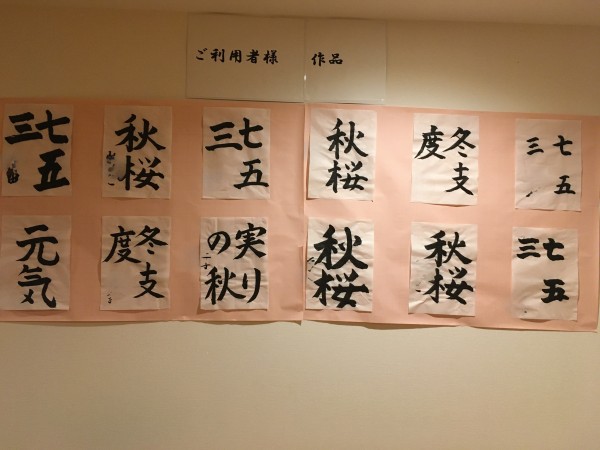 ご利用者様 作品
七五
三
秋桜
七五
三
秋桜
冬支
度
七五
三
元気
冬支
度
実り
の秋
秋桜
秋桜
七五
三